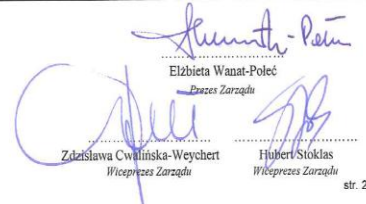 Elżbieta Wanat-Połeć
Prezes Zarządu
Zdzisława Cwalińska-Weychert
Wiceprezes Zarządu
Hubert Stoklas
Wiceprezes Zarządu
str. 2